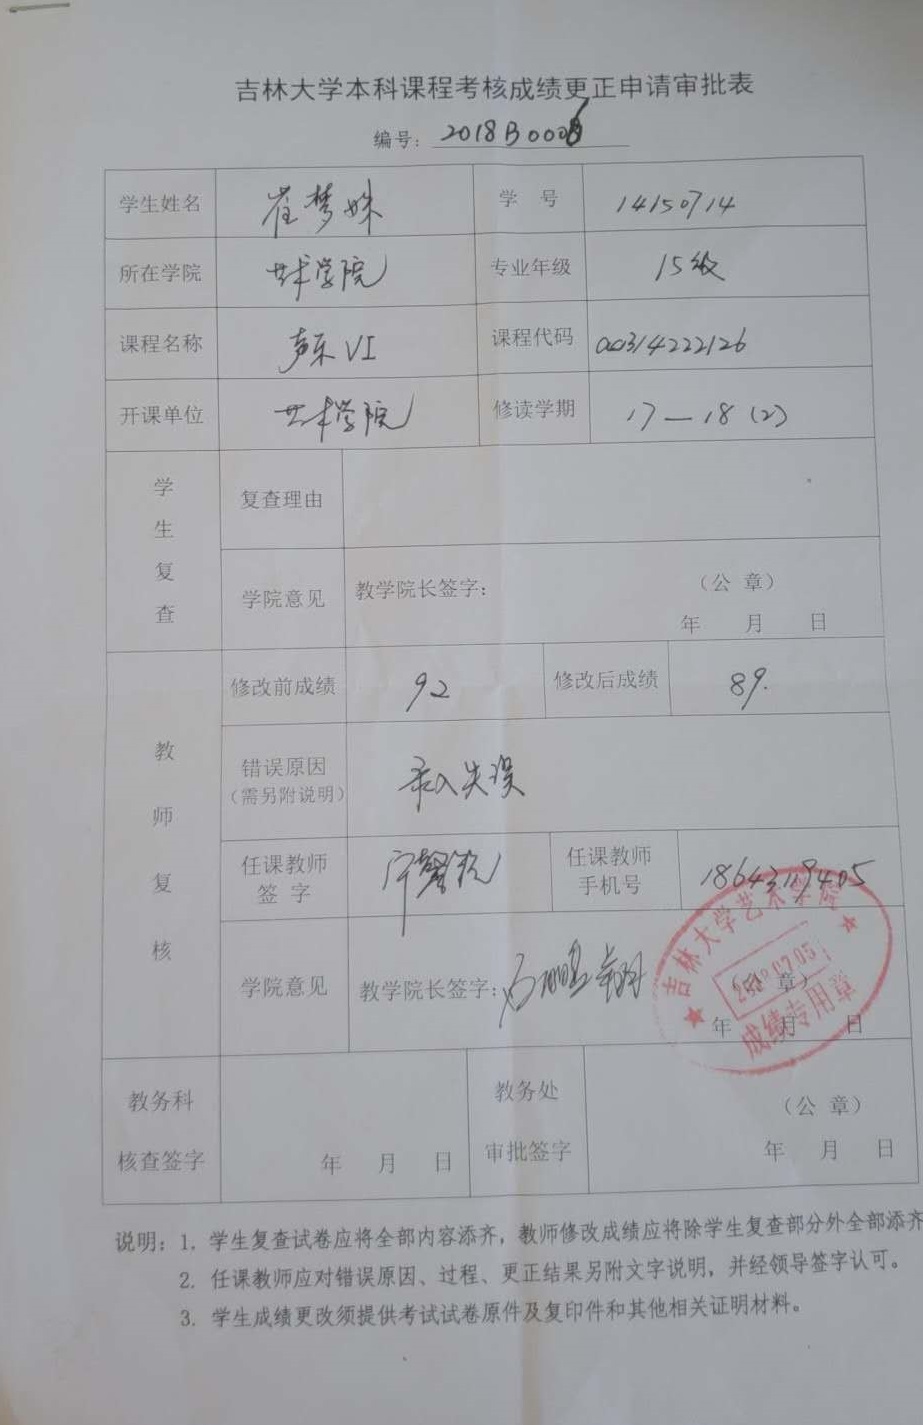 吉林大学本科课程考核成绩更正申请审批表
编号：2018B0006
学生姓名 崔梦姝 学 号 14150714
所在学院 艺术学院 专业年级 15级
课程名称 声乐VI 课程代码 00314222126
开课单位 艺术学院 修读学期 17—18（2）
学生复查
复查理由
学院意见 教学院长签字：
（公 章）
年 月 日
教师复核
修改前成绩 92 修改后成绩 89.
错误原因
（需另附说明） 录入失误
任课教师
签 字
任课教师
手机号 18643119405
学院意见 教学院长签字：
（公 章）
年 月 日
吉林大学艺术学院
成绩专用章
教务科
核查签字
年 月 日
教务处
审批签字
（公 章）
年 月 日
说明：1. 学生复查试卷应将全部内容添齐，教师修改成绩应将除学生复查部分外全部添齐
2. 任课教师应对错误原因、过程、更正结果另附文字说明，并经领导签字认可。
3. 学生成绩更改须提供考试试卷原件及复印件和其他相关证明材料。